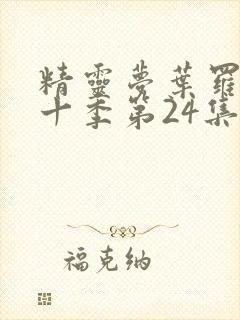 精靈夢葉羅
十季第24集
福克纳